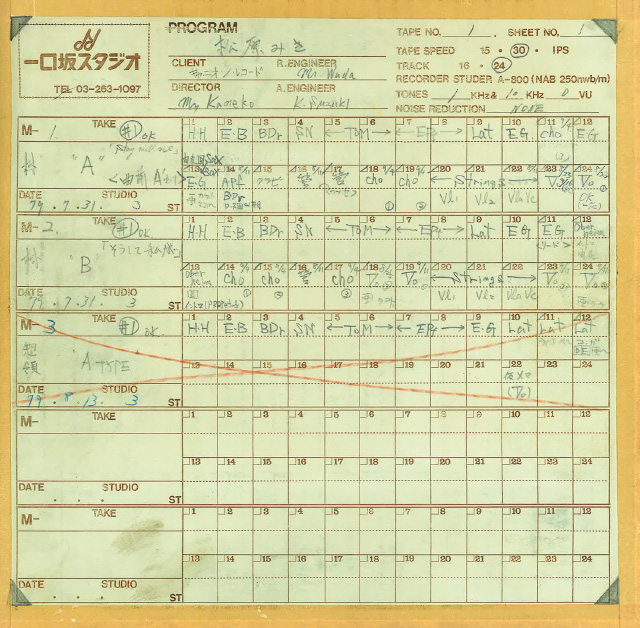 一口坂スタジオ
TEL 03-263-1097
PROGRAM
松原みき
CLIENT
キャニオン・レコード
R.ENGINEER
Mr. Wada
DIRECTOR
Mr Kaneko
A.ENGINEER
K. Suzuki
TAPE NO. 1 . SHEET NO. 1
TAPE SPEED 15 · 30 · IPS
TRACK 16 · 24
RECORDER STUDER A-800 (NAB 250nwb/m)
TONES 1 KHz& 10 KHz 0 VU
NOISE REDUCTION NONE
M- 1. TAKE #1 OK
1 2 3 4 5 6 7 8 9 10 11 12
H·H E·B BDr SN ←TOM→ ←EP→ Lat E.G cho E.G
林 "A"
13 14 15 16 17 18 19 20 21 22 23 24
E·G cho cho ←Strings→ Vo
Vl1 Vl2 Va Vc
DATE STUDIO
79. 7. 31. 3 ST
M- 2. TAKE #1 OK
1 2 3 4 5 6 7 8 9 10 11 12
H·H E·B BDr SN ←TOM→ ←EP→ Lat EG EG
林 "B"
13 14 15 16 17 18 19 20 21 22 23 24
cho cho cho ←Strings→
Vl1 Vl2 Va Vc
DATE STUDIO
79. 7. 31. 3 ST
M- 3 TAKE #1 OK.
1 2 3 4 5 6 7 8 9 10 11 12
H·H E·B BDr SN ←TOM→ ←EP→ E·G Lat Lat Lat
惣領 "A TYPE
13 14 15 16 17 18 19 20 21 22 23 24
仮メロ
(Vo)
DATE STUDIO
79. 8. 13. 3 ST
M- TAKE
1 2 3 4 5 6 7 8 9 10 11 12
13 14 15 16 17 18 19 20 21 22 23 24
DATE STUDIO
. . . ST
M- TAKE
1 2 3 4 5 6 7 8 9 10 11 12
13 14 15 16 17 18 19 20 21 22 23 24
DATE STUDIO
. . . ST